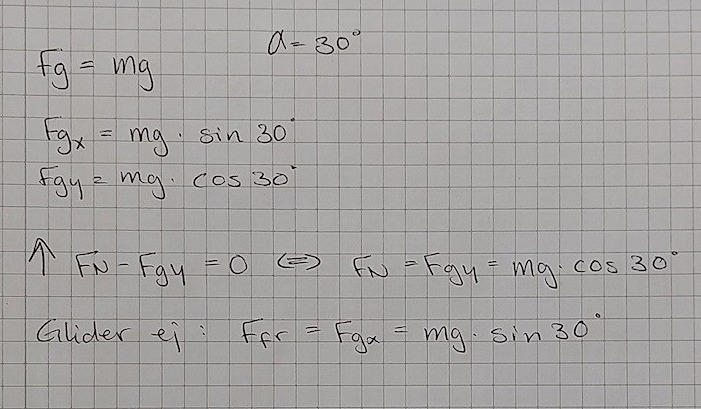 α = 30°
Fg = mg
Fgx = mg · sin 30°
Fgy = mg · cos 30°
↑ FN - Fgy = 0 ⇔ FN = Fgy = mg · cos 30°
Glider ej : Ffr = Fgx = mg · sin 30°